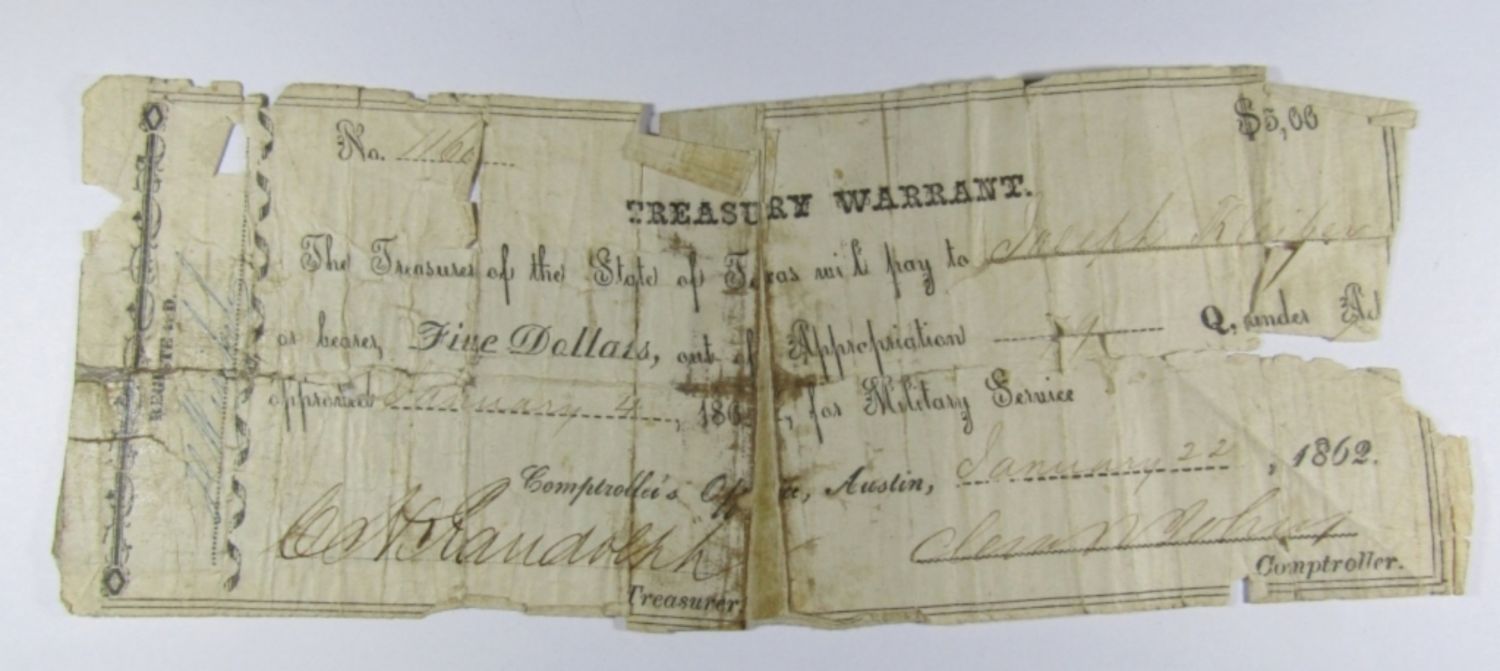 No. 1160
$5,00
TREASURY WARRANT.
The Treasurer of the State of Texas will pay to Joseph
or bearer, Five Dollars, out of Appropriation Q, under Act
approved January 4, 186 , for Military Service
Comptroller's Office, Austin, January 22, 1862.
C H Randolph
Clem R Johns
Treasurer
Comptroller.
REGISTERED.